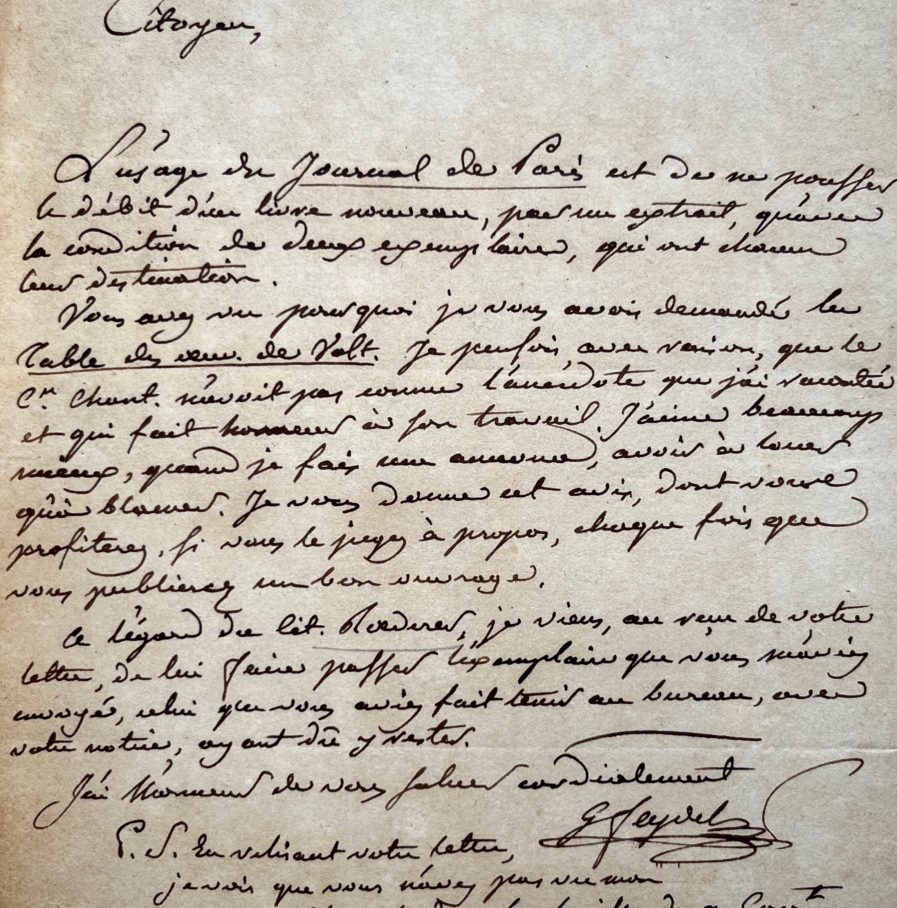 Citoyen,
L'usage du Journal de Paris est de ne pousser
le débit d'un livre nouveau, par un extrait, qu'avec
la condition de deux exemplaires, qui ont chacun
leur destination.
Vous avez vu pourquoi je vous avois demandé la
Table des œuv. de Volt. Je pensois, avec raison, que le
Cn. Chant. n'avoit pas connu l'anecdote que j'ai racontée
et qui fait honneur à son travail. J'aime beaucoup
mieux, quand je fais une annonce, avoir à louer
qu'à blamer. Je vous donne cet avis, dont vous
profiterez, si vous le jugez à propos, chaque fois que
vous publierez un bon ouvrage.
A l'égard du Cit. Rœderer, je viens, au reçu de votre
lettre, de lui faire passer l'exemplaire que vous m'aviez
envoyé, celui que vous aviez fait tenir au bureau, avec
votre notice, ayant dû y rester.
J'ai l'honneur de vous saluer cordialement
G Feydel
P. S. En relisant votre lettre,
je vois que vous n'avez pas vu mon